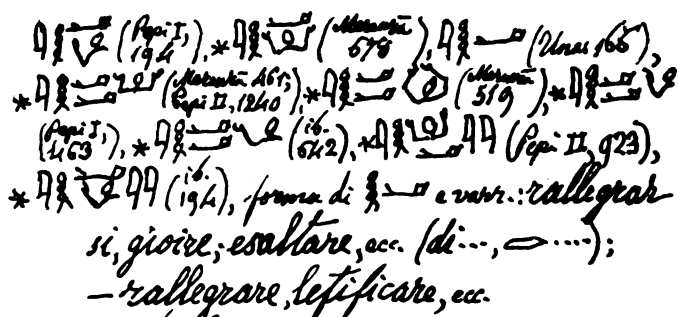 (Pepi I, 194), * (Merenrā 578), (Unas 166),
* (Merenrā 461; Pepi II, 1240), * (Merenrā 519), *
(Pepi I, 463), * (ib. 642), * (Pepi II, 923),
* (ib. 194), forma di e varr.: rallegrar
si, gioire; esaltare, ecc. (di..., ....);
– rallegrare, letificare, ecc.